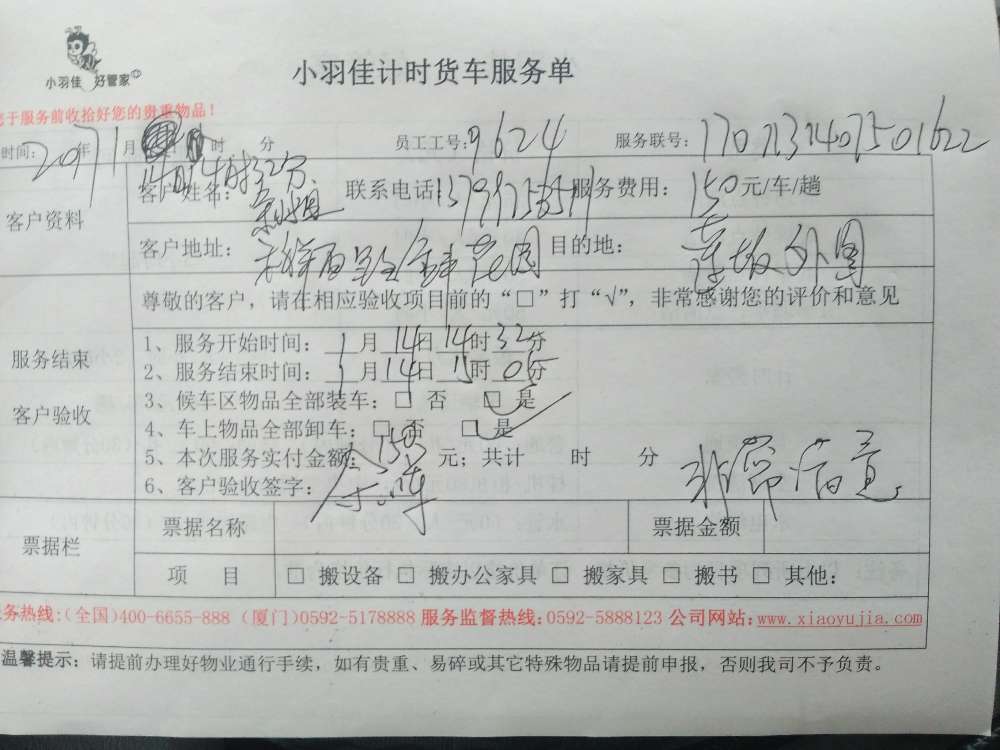 小羽佳 好管家
小羽佳计时货车服务单
于服务前收拾好您的贵重物品!
时间: 2017年1月 时 分 员工工号: 9624 服务联号:
14日14时32分
客户资料
客户姓名: 联系电话 服务费用: 150元/车/趟
客户地址: 花园 目的地: 莲坂外图
尊敬的客户,请在相应验收项目前的“□”打“√”,非常感谢您的评价和意见
服务结束
客户验收
1、服务开始时间: 1月14日14时32分
2、服务结束时间: 1月14日15时05分
3、候车区物品全部装车:□ 否 □ 是
4、车上物品全部卸车:□ 否 □ 是
5、本次服务实付金额: 150元;共计 时 分
6、客户验收签字: 非常满意
票据栏
票据名称 票据金额
项 目 □ 搬设备 □ 搬办公家具 □ 搬家具 □ 搬书 □ 其他:
务热线:(全国)400-6655-888 (厦门)0592-5178888 服务监督热线:0592-5888123 公司网站:www.xiaoyujia.com
温馨提示:请提前办理好物业通行手续,如有贵重、易碎或其它特殊物品请提前申报,否则我司不予负责。